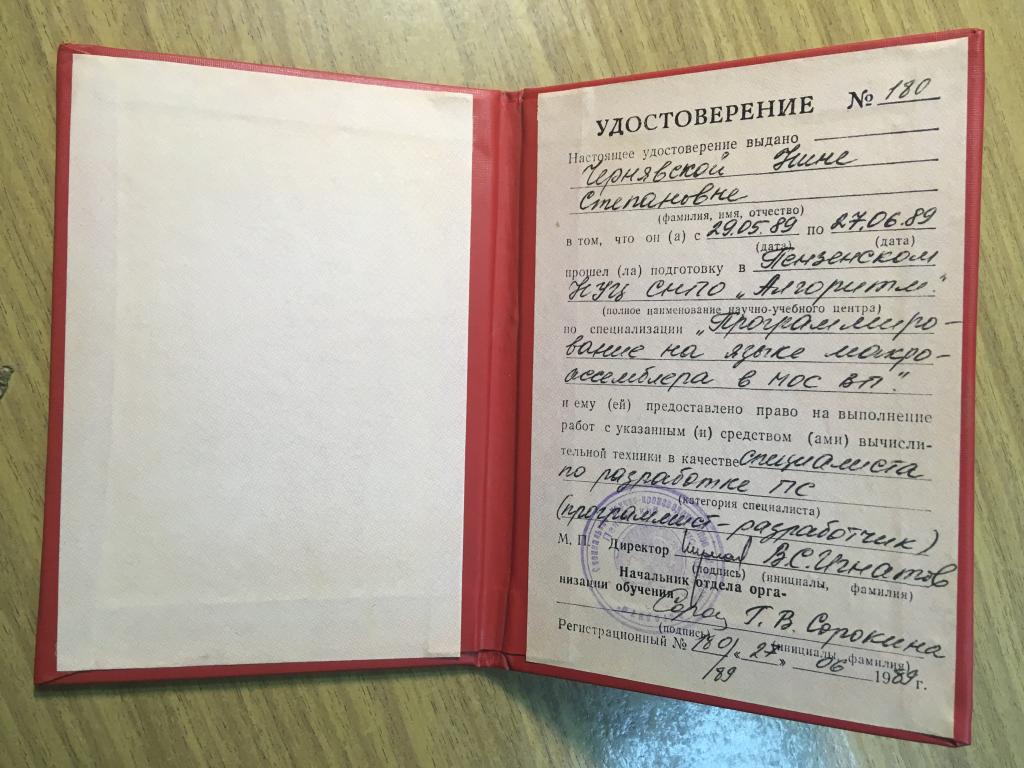 УДОСТОВЕРЕНИЕ № 180
Настоящее удостоверение выдано
Чернявской Нине
Степановне
(фамилия, имя, отчество)
в том, что он (а) с 29.05.89 по 27.06.89
(дата) (дата)
прошел (ла) подготовку в Пензенском
НУЦ СНПО „Алгоритм"
(полное наименование научно-учебного центра)
по специализации „Программиро-
вание на языке макро-
ассемблера в мос вп".
и ему (ей) предоставлено право на выполнение
работ с указанным (и) средством (ами) вычисли-
тельной техники в качестве специалиста
по разработке ПС
(категория специалиста)
(программист-разработчик)
М. П. Директор В.С. Игнатов
(подпись) (инициалы, фамилия)
Начальник отдела орга-
низации обучения
Г. В. Сорокина
(подпись) (инициалы, фамилия)
Регистрационный № 180/89 „27" 06 1989 г.